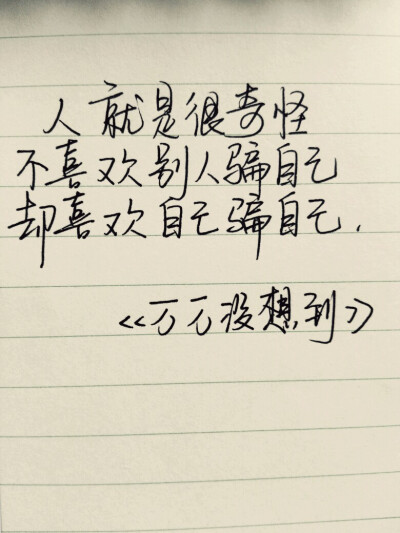 人就是很奇怪
不喜欢别人骗自己
却喜欢自己骗自己.
《万万没想到》